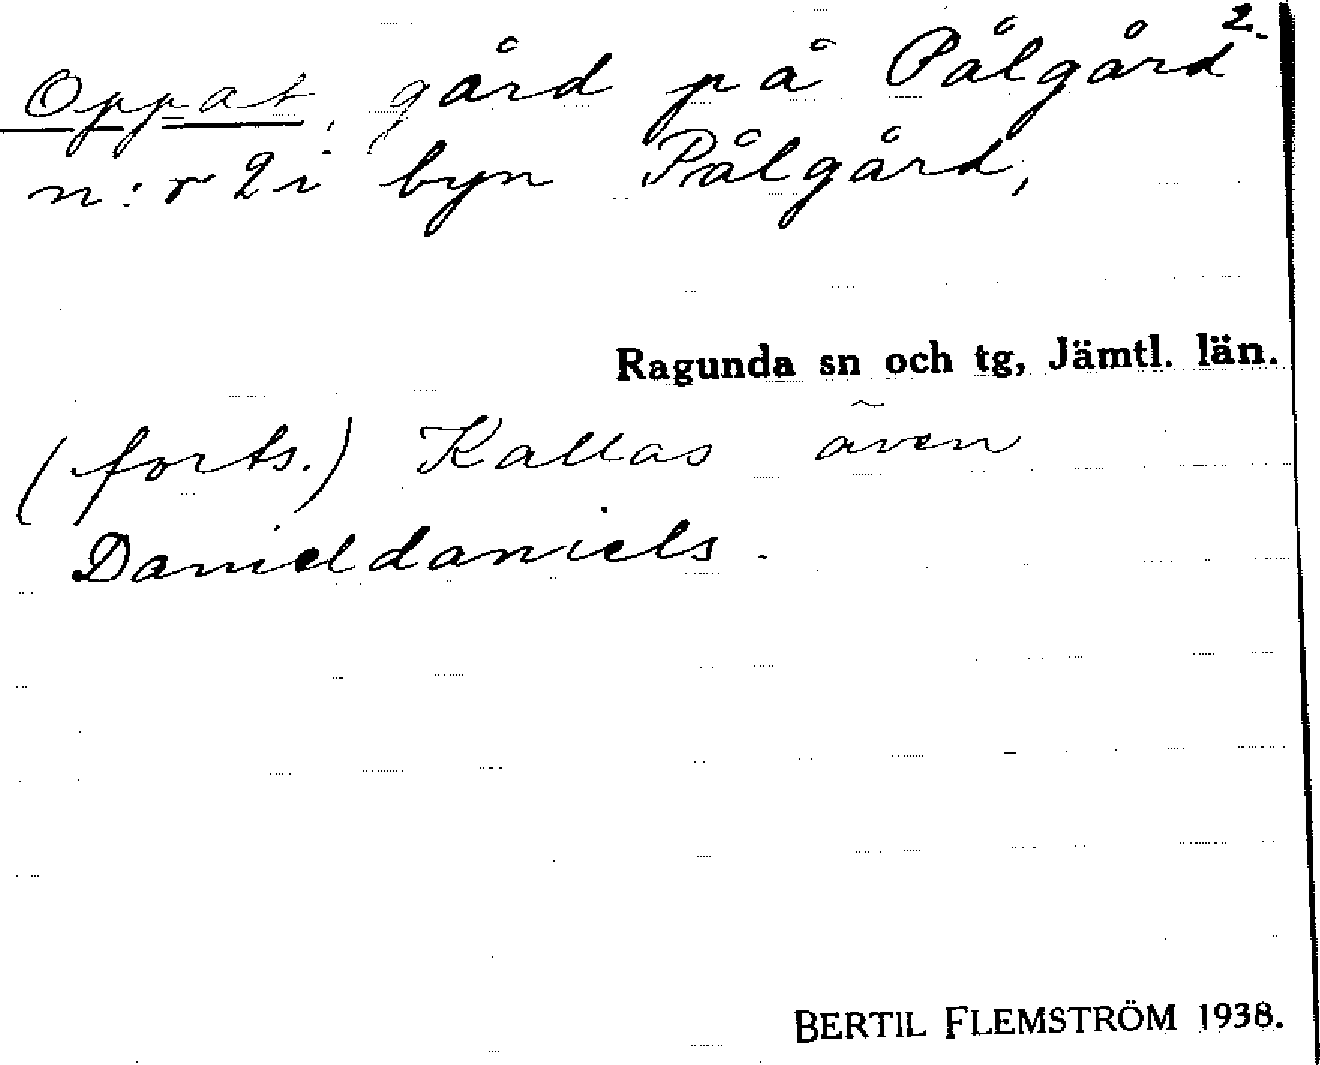 2.
Oppat, gård på Pålgård
n:r 2 i byn Pålgård,
Ragunda sn och tg, Jämtl. län.
(forts.) Kallas även
Danieldaniels.
BERTIL FLEMSTRÖM 1938.